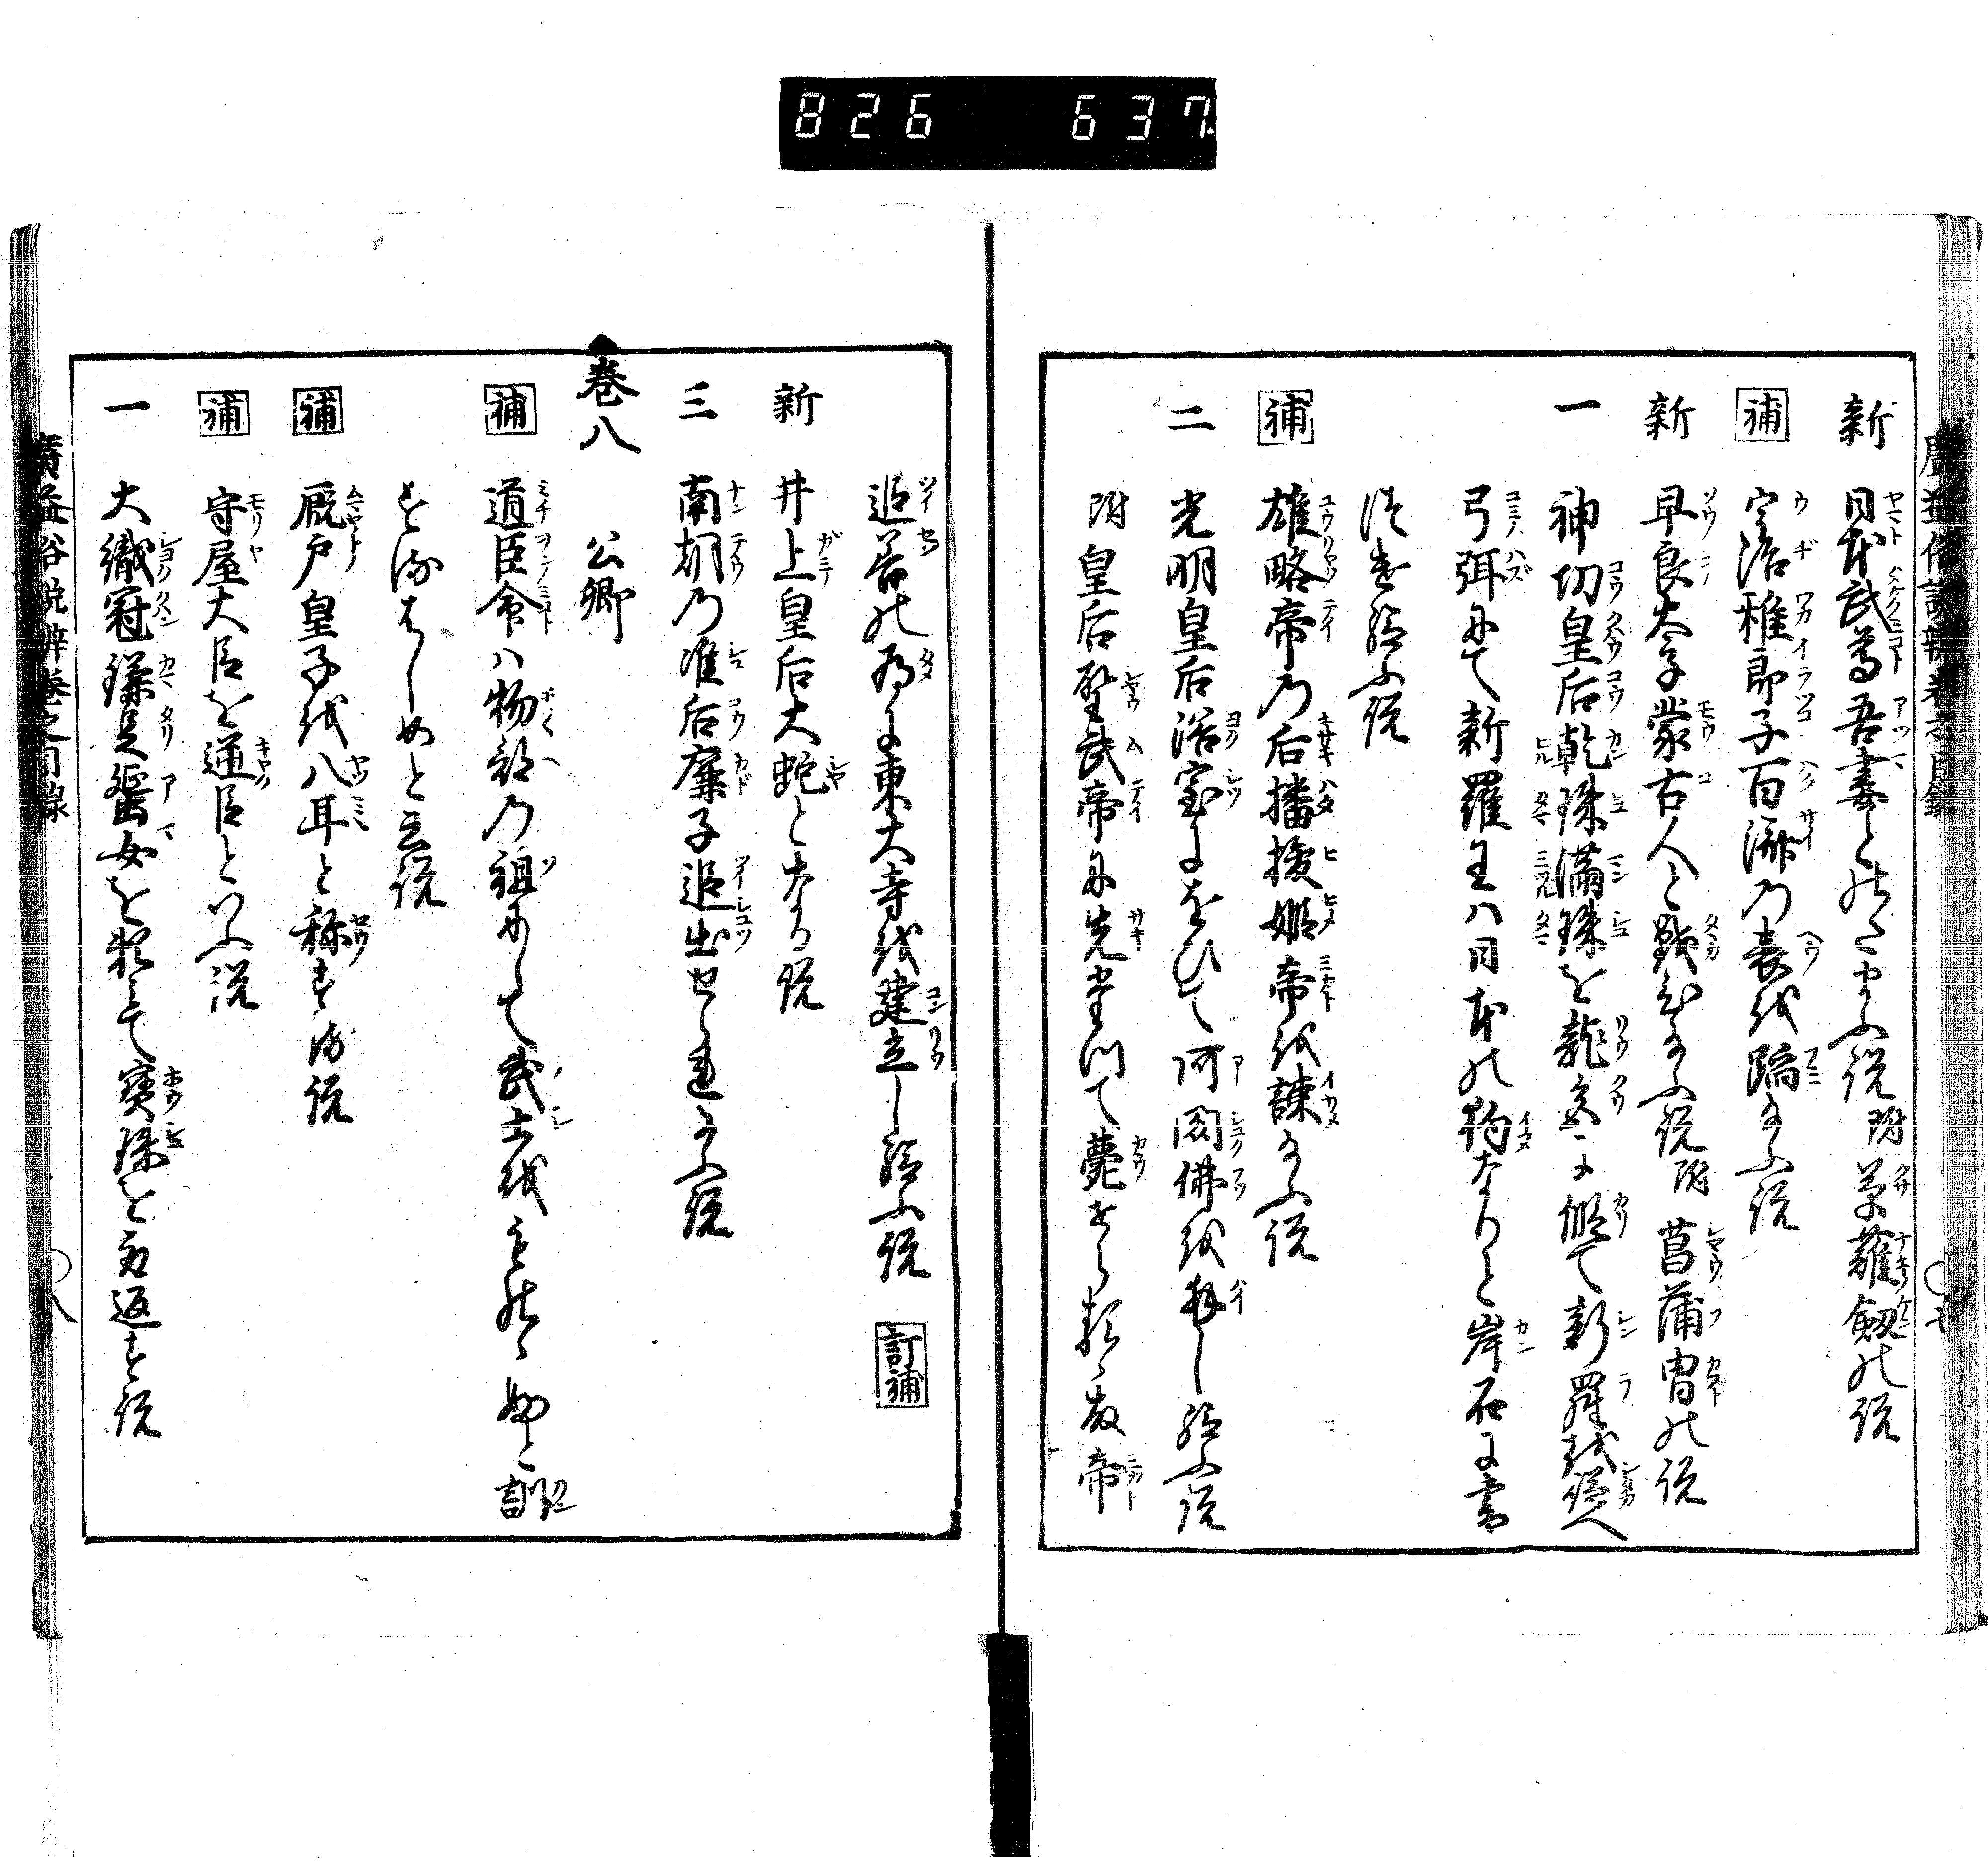 826 637
廣益俗説辨巻之目録
新 日本武尊吾妻とのたまふ説 附 草薙劔の説
補 宇治稚郎子百済の表を蹈給ふ説
新 早良太子蒙古人と戦給ふ説 附 菖蒲冑の説
一 神功皇后乾珠満珠を龍宮に借て新羅を従へ
弓弭にて新羅王ハ日本の狗なりと岸石に書
つけ給ふ説
補 雄略帝の后播稜姫帝を諫給ふ説
二 光明皇后浴室にをひて阿閦佛を拝し給ふ説
附 皇后聖武帝に先だつて薨ぜらる 故帝
追善の為に東大寺を建立し給ふ説 訂補
新 井上皇后大蛇となる説
三 南朝の准后廉子追出せられ給ふ説
巻八 公卿
補 道臣命ハ物部の祖にして武士をものゝふと訓
ずるはじめと云説
補 厩戸皇子を八耳と称する説
補 守屋大臣を逆臣といふ説
一 大織冠鎌足蜑女を犯して寳珠を取返す説
廣益俗説辨巻之目録 〇八